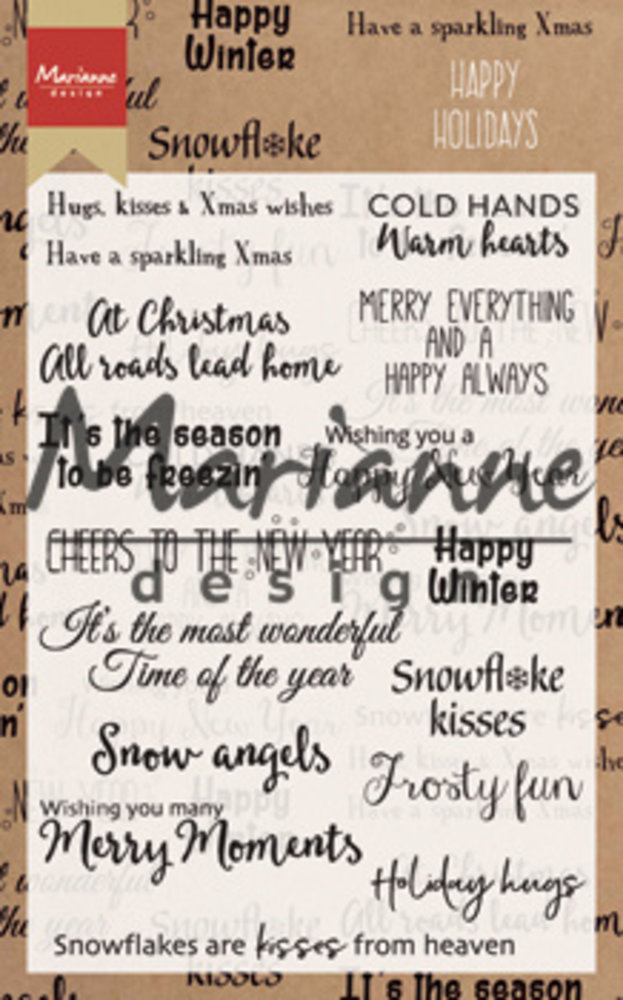 Happy
Winter
Have a sparkling Xmas
Marianne
design
HAPPY
HOLIDAYS
Snowflake
kisses
Hugs, kisses & Xmas wishes
Have a sparkling Xmas
COLD HANDS
Warm hearts
At Christmas
All roads lead home
MERRY EVERYTHING
AND A
HAPPY ALWAYS
It's the season
to be freezin'
Wishing you a
Happy New Year
Marianne
design
CHEERS TO THE NEW YEAR
Happy
Winter
It's the most wonderful
Time of the year
Snowflake
kisses
Snow angels
Frosty fun
Wishing you many
Merry Moments
Holiday hugs
Snowflakes are kisses from heaven
kisses
It's the season